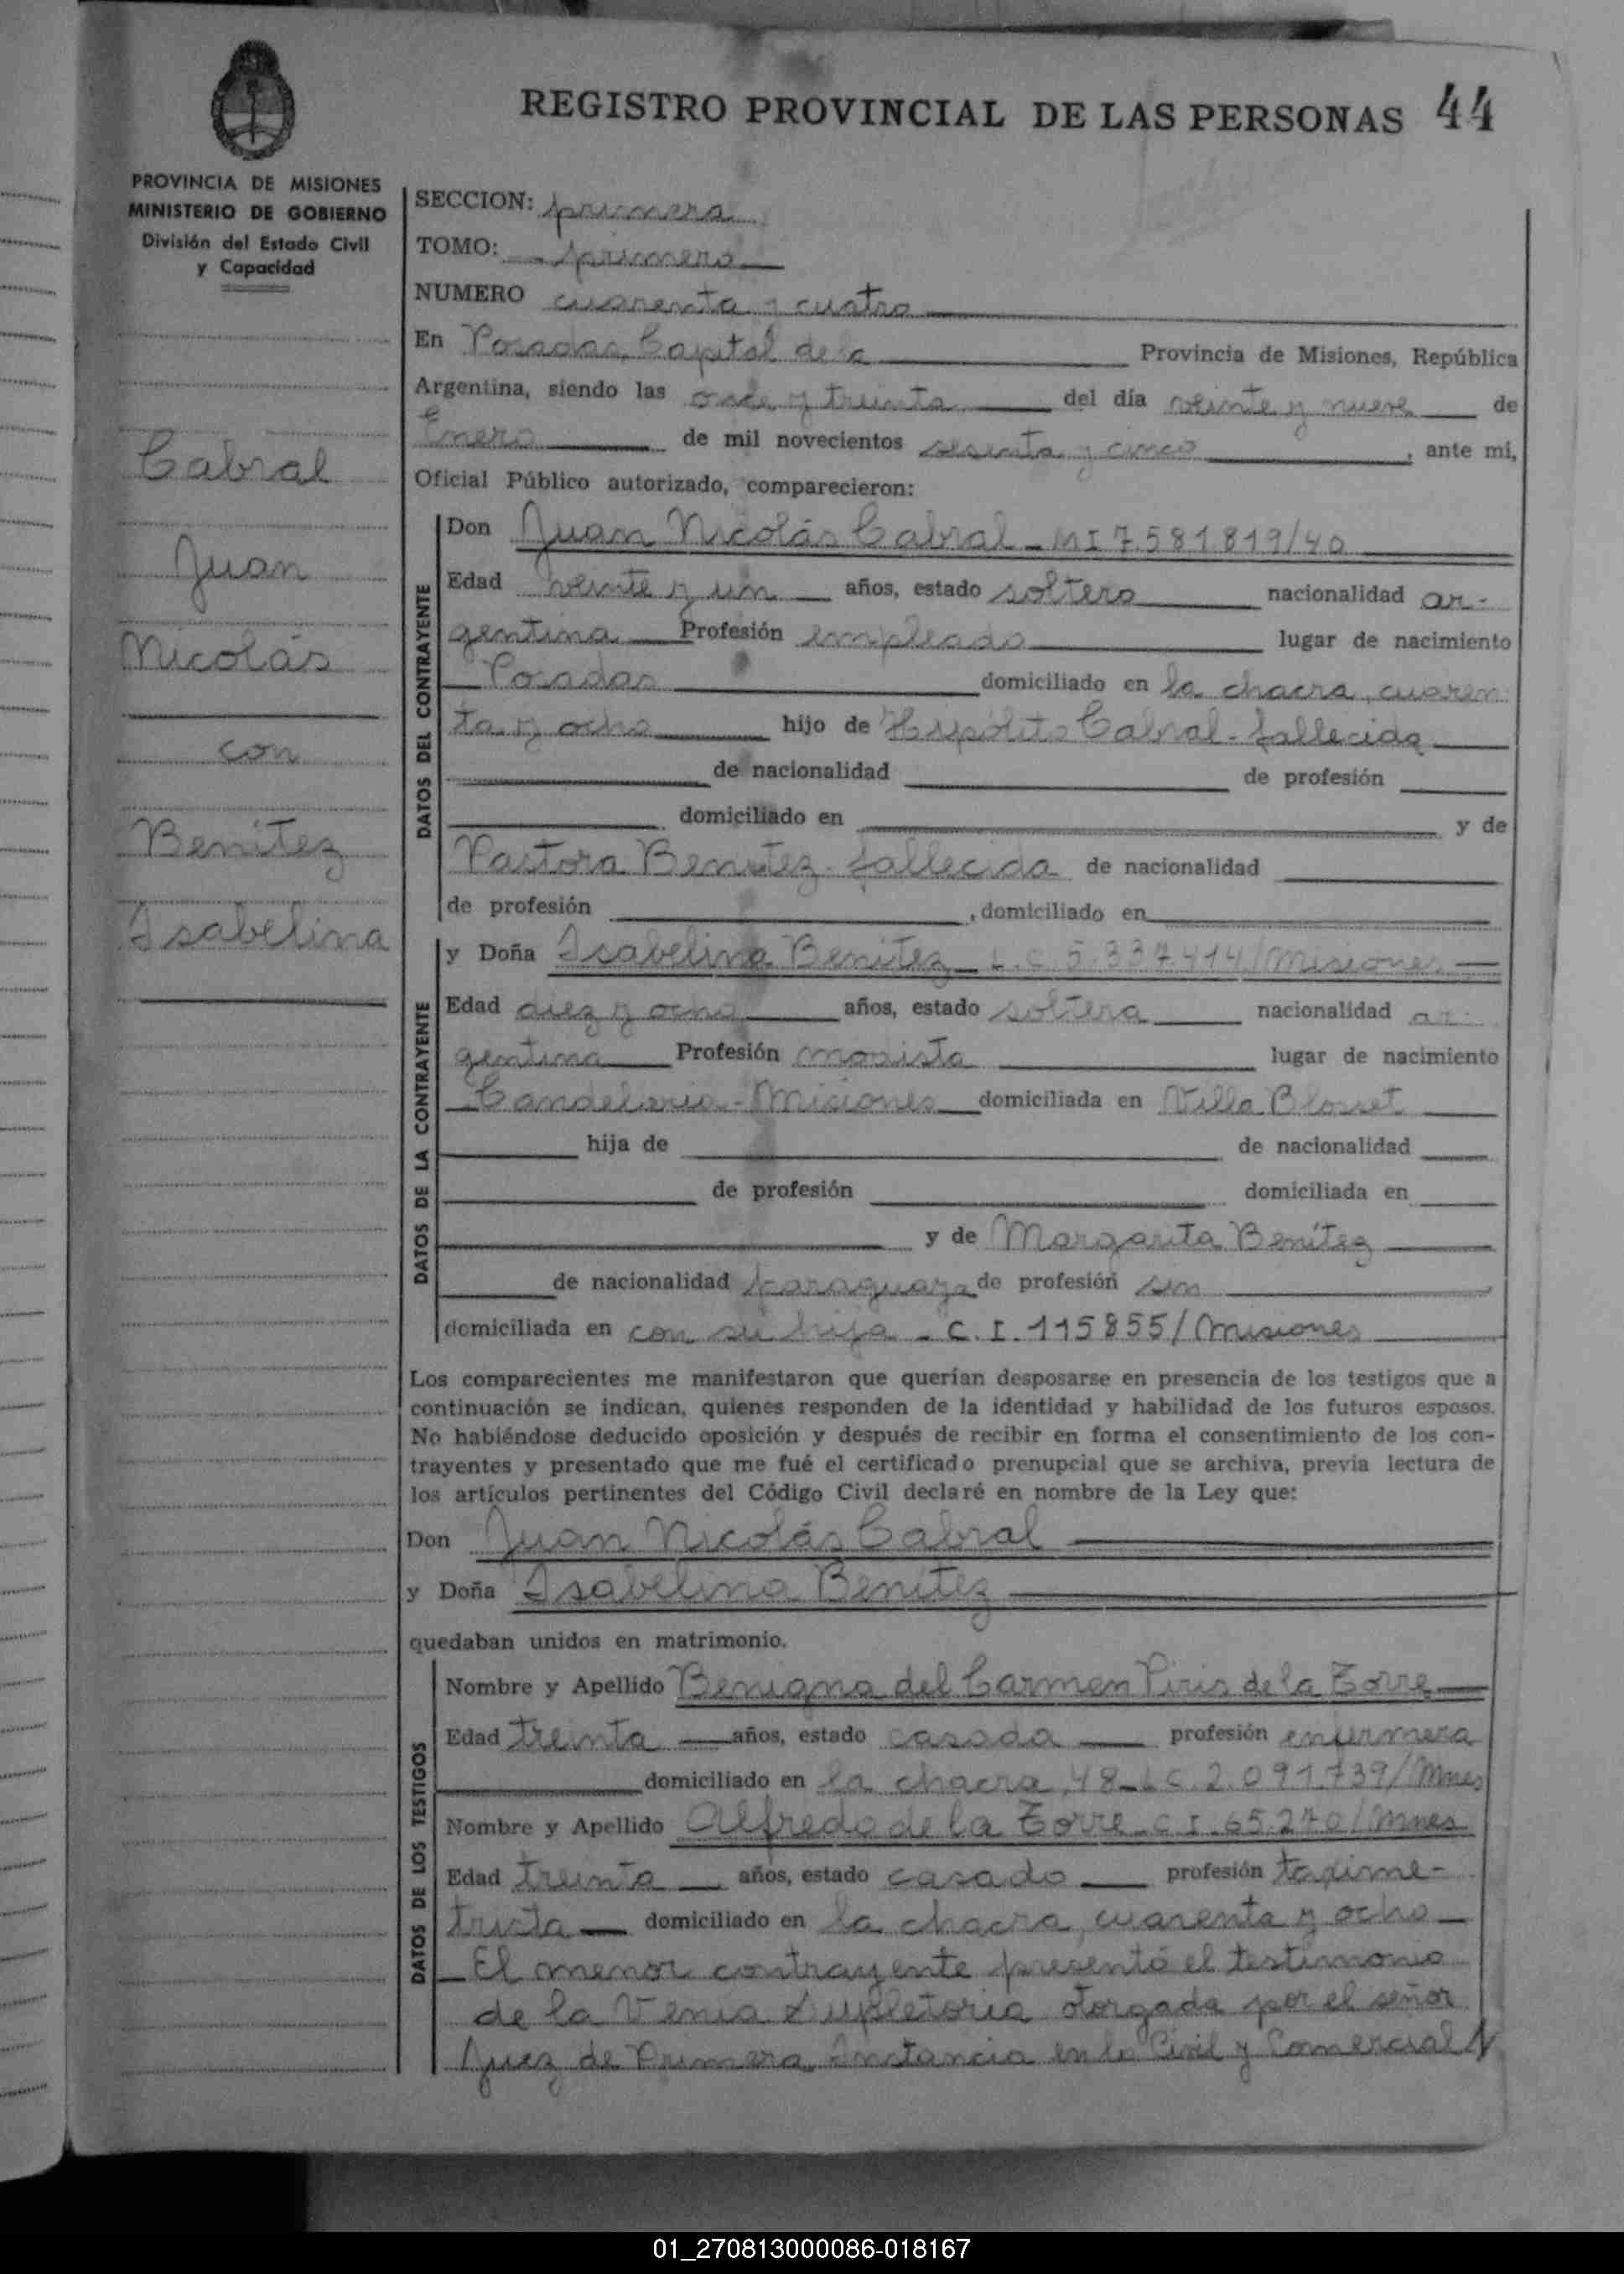 REGISTRO PROVINCIAL DE LAS PERSONAS 44
PROVINCIA DE MISIONES
MINISTERIO DE GOBIERNO
División del Estado Civil
y Capacidad
Cabral
Juan
Nicolás
con
Benítez
Isabelina
SECCION: primera
TOMO: primero
NUMERO cuarenta y cuatro
En Posadas, Capital de la Provincia de Misiones, República
Argentina, siendo las once y treinta del día veinte y nueve de
Enero de mil novecientos sesenta y cinco, ante mi,
Oficial Público autorizado, comparecieron:
DATOS DEL CONTRAYENTE
Don Juan Nicolás Cabral - MI 7.581.819/40
Edad veinte y un años, estado soltero nacionalidad ar-
gentina Profesión empleado lugar de nacimiento
Posadas domiciliado en la chacra, cuaren
ta y ocho hijo de Hipólito Cabral - fallecido
de nacionalidad de profesión
domiciliado en y de
Pastora Benítez - fallecida de nacionalidad
de profesión , domiciliado en
DATOS DE LA CONTRAYENTE
y Doña Isabelina Benítez - L.C. 5.337.414/Misiones
Edad diez y ocho años, estado soltera nacionalidad ar-
gentina Profesión modista lugar de nacimiento
Candelaria - Misiones domiciliada en Villa Blosset
hija de de nacionalidad
de profesión domiciliada en
y de Margarita Benítez
de nacionalidad paraguaya de profesión sin
domiciliada en con su hija - C.I. 115855/Misiones
Los comparecientes me manifestaron que querían desposarse en presencia de los testigos que a
continuación se indican, quienes responden de la identidad y habilidad de los futuros esposos.
No habiéndose deducido oposición y después de recibir en forma el consentimiento de los con-
trayentes y presentado que me fué el certificado prenupcial que se archiva, previa lectura de
los artículos pertinentes del Código Civil declaré en nombre de la Ley que:
Don Juan Nicolás Cabral
y Doña Isabelina Benítez
quedaban unidos en matrimonio.
DATOS DE LOS TESTIGOS
Nombre y Apellido Benigna del Carmen Piris de la Torre
Edad treinta años, estado casada profesión enfermera
domiciliado en la chacra, 48 - L.C. 2.091.739/Mnes
Nombre y Apellido Alfredo de la Torre - C.I. 65.270/Mnes
Edad treinta años, estado casado profesión taxime-
trista domiciliado en la chacra, cuarenta y ocho
El menor contrayente presentó el testimonio
de la Venia Supletoria otorgada por el señor
Juez de Primera Instancia en lo Civil y Comercial N
01_270813000086-018167